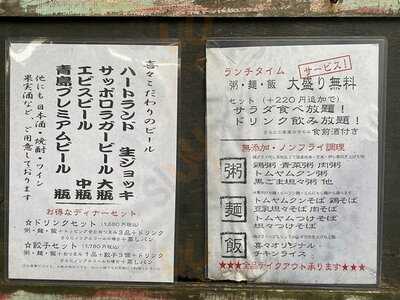 喜々こだわりのビール
ハートランド 生ジョッキ
サッポロラガービール 大瓶
エビスビール 中瓶
青島プレミアムビール 瓶
他にも日本酒・焼酎・ワイン
果実酒など、ご用意しております。
お得なディナーセット
☆ドリンクセット
粥・麺・飯
3品+ドリンク
蒸しパン
☆餃子セット
粥・麺・飯
ドリンク
蒸しパン
ランチタイム サービス!
粥・麺・飯 大盛り無料
セット (+220円追加で)
サラダ食べ放題!
ドリンク飲み放題!
食前酒付き
無添加・ノンフライ調理
粥
鶏粥 青菜粥 肉粥
トムヤムクン粥
黒ごま坦々粥 他
麺
トムヤムクンそば 鶏そば
豆乳坦々そば 肉そば
トムヤムつけそば
坦々つけそば 他
飯
喜々オリジナル
チキンライス
★★★全品テイクアウト承ります★★★